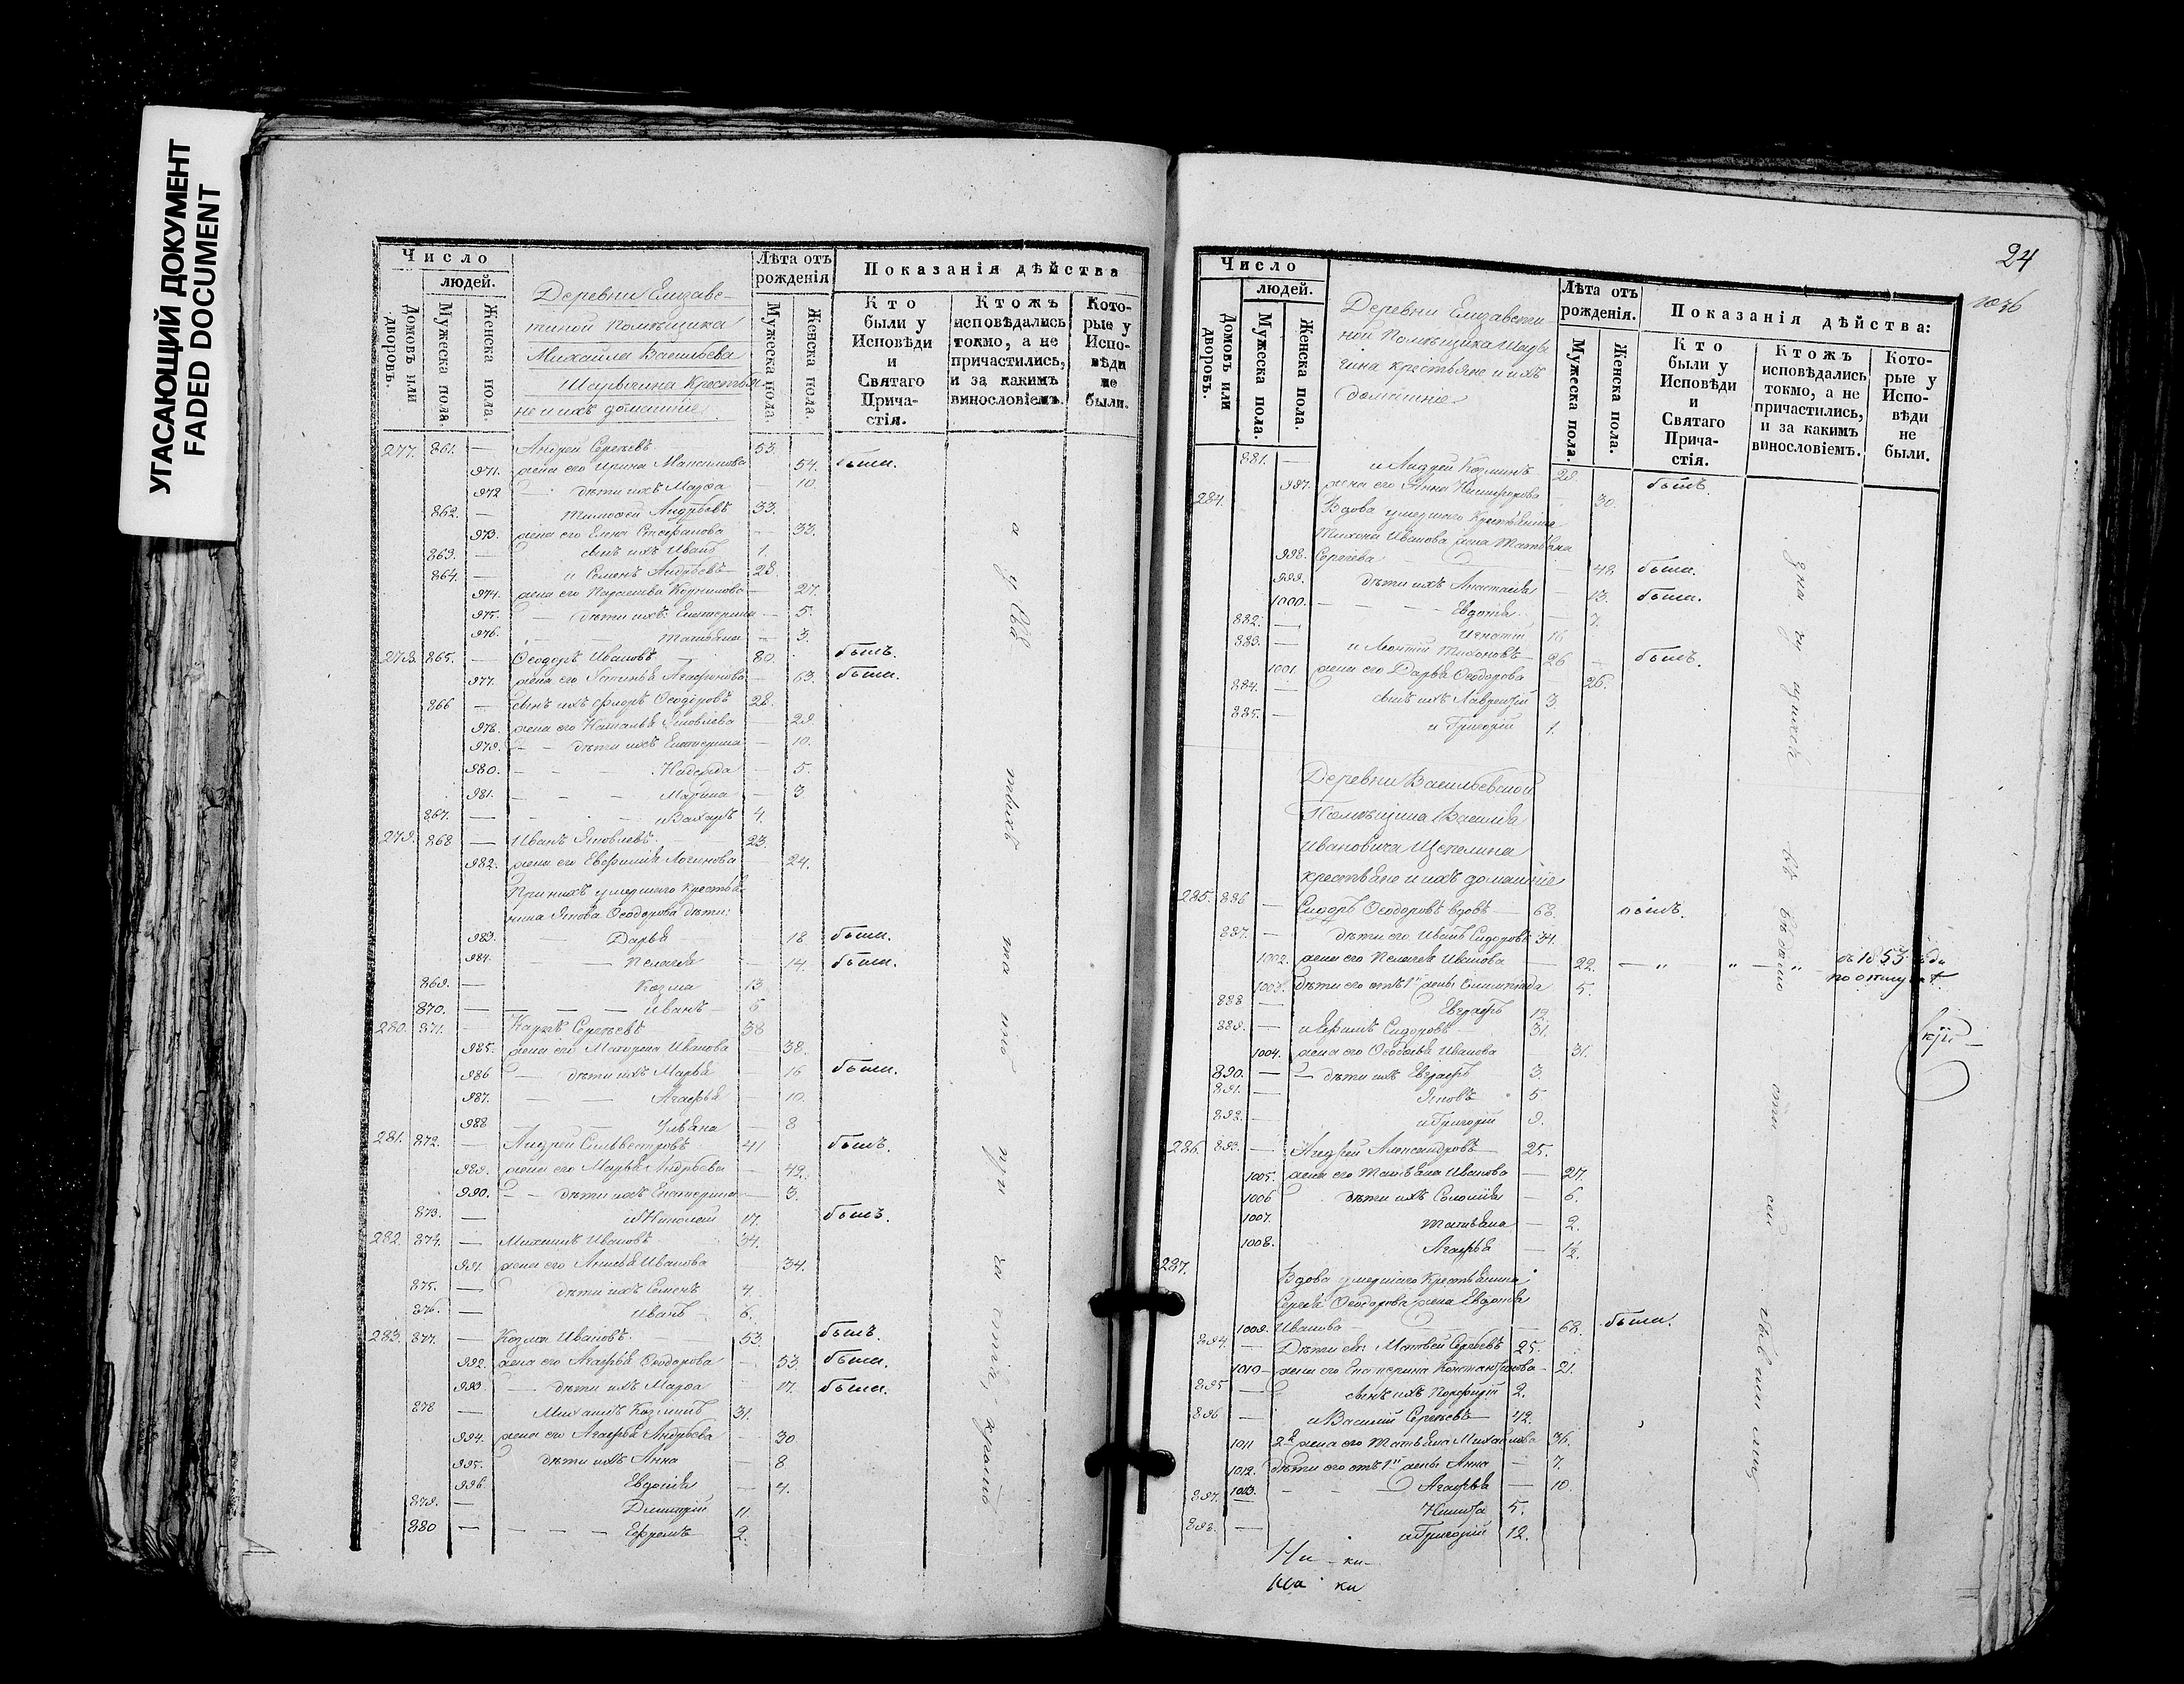 УГАСАЮЩИЙ ДОКУМЕНТ
FADED DOCUMENT
Число
людей.
Домовъ или дворовъ.
Мужеска пола.
Женска пола.
Деревни Елизаве-
тиной Помѣщика
Михаила Васильева
Крестья
не и ихъ домашніе.
Лѣта отъ рожденія
Мужеска пола.
Женска пола.
Показанія дѣйства
Кто были у Исповѣди и Святаго Прича-стія.
Ктожъ исповѣдались токмо, а не причастились, и за какимъ винословіемъ.
Кото-рые у Испо-вѣди не были.
277. 861. — Андрей Сергѣевъ 53.
971. жена его Ирина Максимова 54. была.
972 — дѣти ихъ Марѳа — 10.
862. — Тимоѳей Андрѣевъ 33.
973. жена его Елена Стефанова — 33.
863. — сынъ ихъ Иванъ 1.
864. — и Семенъ Андрѣевъ — 28.
974. жена его Параскева Корнилова — 27.
975. — дѣти ихъ: Екатерина — 5.
976. — Татьяна — 3.
278. 865. — Ѳеодоръ Ивановъ 80. былъ.
977. жена его Устинья Агафонова — 63. была.
866 — сынъ ихъ Флоръ Ѳеодоровъ 28.
978. жена его Наталья Яковлева — 29.
979. — — дѣти ихъ Екатерина — 10.
980. — — — Надежда — 5.
981. — — — Марина — 3.
867. — и Захаръ 4.
279. 868 — Иванъ Яковлевъ. 23.
982. жена его Евфимія Логинова — 24.
При нихъ умершаго крестья-
нина Якова Ѳеодорова дѣти:
983. — Дарья 18 была.
984. — — Пелагея — 14. была.
869. — Козма 13
870. — — — — Иванъ — 5
280. 871. — Карпъ Сергѣевъ 38
985. жена его Матрена Иванова 38.
986 — дѣти ихъ Марья 16 была.
987. — — Агафья — 10.
988 — Ульяна — 8
281. 872. — Андрей Сильвестровъ 41 былъ.
989. жена его Марья Андрѣева — 49.
990. — — дѣти ихъ Екатерина — 3.
873. — и Николай 17. былъ.
282. 874. — Михаилъ Ивановъ 34.
991. жена его Анисья Иванова 34.
875. — дѣти ихъ Семенъ 4.
876. — Иванъ 6.
283. 877. — Козма Ивановъ. 53. былъ.
992. жена его Агафья Ѳеодорова — 53 была.
993 — дѣти ихъ Марѳа 17. была.
878 — Михаилъ Козминъ 31.
994. жена его Агафья Андрѣева — 30.
995. дѣти ихъ Анна — 8
996. Евдокія — 4.
879. — Дмитрій 11.
880 — — — — — Ефремъ 2.
24
Число
людей.
Домовъ или дворовъ.
Мужеска пола.
Женска пола.
Деревни Елизавети-
ной Помѣщика
крестьяне и ихъ
домашніе
Лѣта отъ рожденія.
Мужеска пола.
Женска пола.
Показанія дѣйства:
Кто были у Исповѣди и Святаго Прича-стія.
Ктожъ исповѣдались токмо, а не причастились, и за какимъ винословіемъ.
Кото-рые у Испо-вѣди не были.
881. — и Андрей Козминъ 28. былъ.
997. жена его Анна Никифорова — 30.
284. Вдова умершаго Крестьянина
Тихона Иванова жена Татьяна
998. Сергѣева — 48 была.
999. дѣти ихъ Анастасія — 13. была.
1000. — — — — Евдокія. — 7.
882. — Игнатій 16
883. — и Леонтій Тихоновъ — 26 — былъ.
1001. жена его Дарья Ѳеодорова 26.
884. — сынъ ихъ Лаврентій 3.
885. — и Григорій 1.
Деревни Васильевской
Помѣщика Василья
Ивановича Щепелина
крестьяне и ихъ домашніе
285. 886 — Сидоръ Ѳеодоровъ вдовъ — 68. былъ.
887. — дѣти его Иванъ Сидоровъ 34.
1002. жена его Пелагея Иванова — 22. — „ „ — „ въ 1853
1003. дѣти его отъ 1й жены Олимпіада 5.
888 — Евграфъ 12.
889. — и Ефимъ Сидоровъ — 31.
1004. жена его Ѳеодосья Иванова 31.
890. — — дѣти ихъ Евграфъ 3.
891. — Яковъ 5
892. — и Григорій 9.
286. 893. — Андрей Александровъ — 25.
1005. жена его Татьяна Иванова — 27.
1006 дѣти ихъ Соломія — 6.
1007. Татьяна — 2.
1008. Агафья — 1/2.
287. Вдова умершаго Крестьянина
Сергѣя Ѳеодорова жена Евдокія
1009. Иванова — — — — — 68. была.
894. — Дѣти ея: Матвей Сергѣевъ 25.
1010 — жена его Екатерина Константинова — 21.
895 — сынъ ихъ Порфирій 2.
896 — и Василій Сергѣевъ — 42.
1011 2я жена его Татьяна Михайлова 36.
1012. дѣти его отъ 1й жены Анна — 7.
1013. — — — Агафья — 10.
897. — Никита 5.
898. — и Григорій 12.